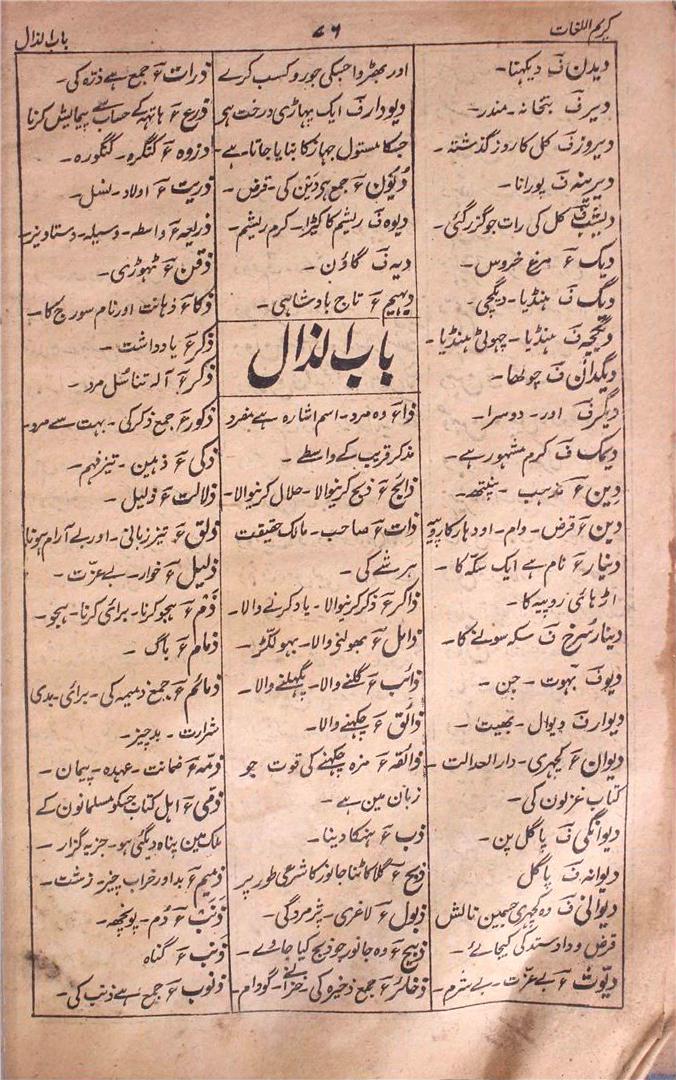 کریم اللغات
۷۶
باب الذال
دیدن ف دیکہنا-
دیر ف بتخانہ - مندر-
دیروز ف کل کا روز گذشتہ -
دیرینہ ف پورانا -
دیشب ف کل کی رات جو گزر گئی -
دیک ء مرغ خروس -
دیگ ف ہنڈیا - دیگچی -
دیگچہ ف ہنڈیا - چہوٹی ہنڈیا -
دیگدان ف چولھا -
دیگر ف اور - دوسرا -
دیمک ف کرم مشہور ہے -
دین ء مذہب - پنتھ -
دین ء قرض - وام - اودہار کا روپیہ
دینار ء نام ہے ایک سکّہ کا -
اڑہائی روپیہ کا -
دینار سرخ ف سکہ سونے کا -
دیو ف بہوت - جن -
دیوار ف دیوال - بھیت -
دیوان ء کچہری - دار العدالت -
کتاب غزلون کی -
دیوانگی ف پاگل پن -
دیوانہ ف پاگل
دیوانی ف وہ کچہری جسمین نالش
قرض و داد ستد کی کیجائے -
دیّوث ء بے عزّت - بے شرم -
اور بھڑوا جسکی جورو کسب کرے
دیودار ف ایک پہاڑی درخت ہی
جسکا مستول جہاز کا بنایا جاتا ہے -
دیون ء جمع ہی دین کی - قرض -
دیوہ ف ریشم کا کیڑا - کرم ریشم -
دیہ ف گاؤن -
دیہیم ء تاج بادشاہی -
باب الذال
ذا ء وہ مرد - اسم اشارہ ہے مفرد
مذکر قریب کے واسطے -
ذابح ء ذبح کرنیوالا - حلال کرنیوالا -
ذات ء صاحب - مالک حقیقت
ہر شے کی -
ذاکر ء ذکر کرنیوالا - یاد کرنے والا -
ذاہل ء بھولنے والا - بھولکّڑ -
ذائب ء گلنے والا - پگہلنے والا -
ذائق ء چکہنے والا -
ذائقہ ء مزہ چکہنے کی قوت جو
زبان مین ہے -
ذب ء ہنکا دینا -
ذبح ء گلا کاٹنا جانور کا شرعی طور پر
ذبول ء لاغری - پژمردگی -
ذبیح ء وہ جانور جو ذبح کیا جاوے -
ذخائر ء جمع ذخیرہ کی - خزانے - گودام -
ذرات ء جمع ہے ذرّہ کی -
ذرع ء ہاتہہ کے حساب سے پیمایش کرنا
ذروہ ء کنگرہ - کنگورہ -
ذریت ء اولاد - نسل -
ذریعہ ء واسطہ - وسیلہ - دستاویز -
ذقن ء ٹہوڑی -
ذکا ء ذہانت اور نام سورج کا -
ذکر ء یادداشت -
ذکر ء آلہ تناسل مرد -
ذکور ء جمع ذکر کی - بہت سے مرد -
ذکی ء ذہین - تیز فہم -
ذلالت ء ذلیل -
ذلق ء تیز زبانی - اور بے آرام ہونا
ذلیل ء خوار - بے عزّت -
ذم ء ہجو کرنا - برائی کرنا - ہجو -
ذمام ء باگ -
ذمائم ء جمع ذمیمہ کی - برائی - بدی
شرارت - بد چیز -
ذمّہ ء ضمانت - عہدہ - پیمان -
ذمّی ء اہل کتاب جسکو مسلمانون کے
ملک مین پناہ دیگئی ہو - جزیہ گزار -
ذمیم ء بد اور خراب چیز - زشت -
ذنب ء دم - پونچھ -
ذنب ء گناہ
ذنوب ء جمع ہے ذنب کی -